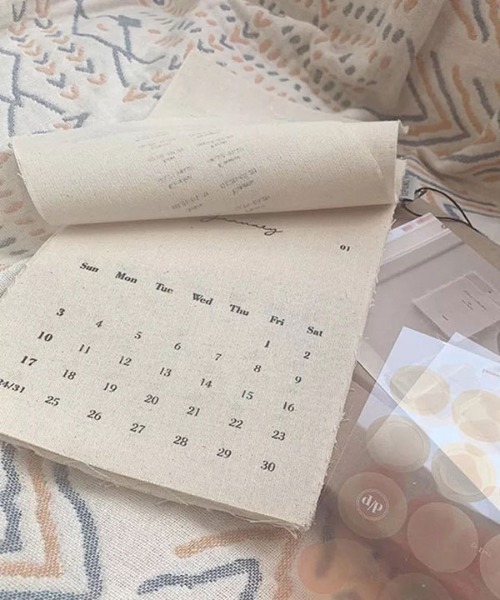 January
01
Sun Mon Tue Wed Thu Fri Sat
1 2
3 4 5 6 7 8 9
10 11 12 13 14 15 16
17 18 19 20 21 22 23
24/31 25 26 27 28 29 30
d/p